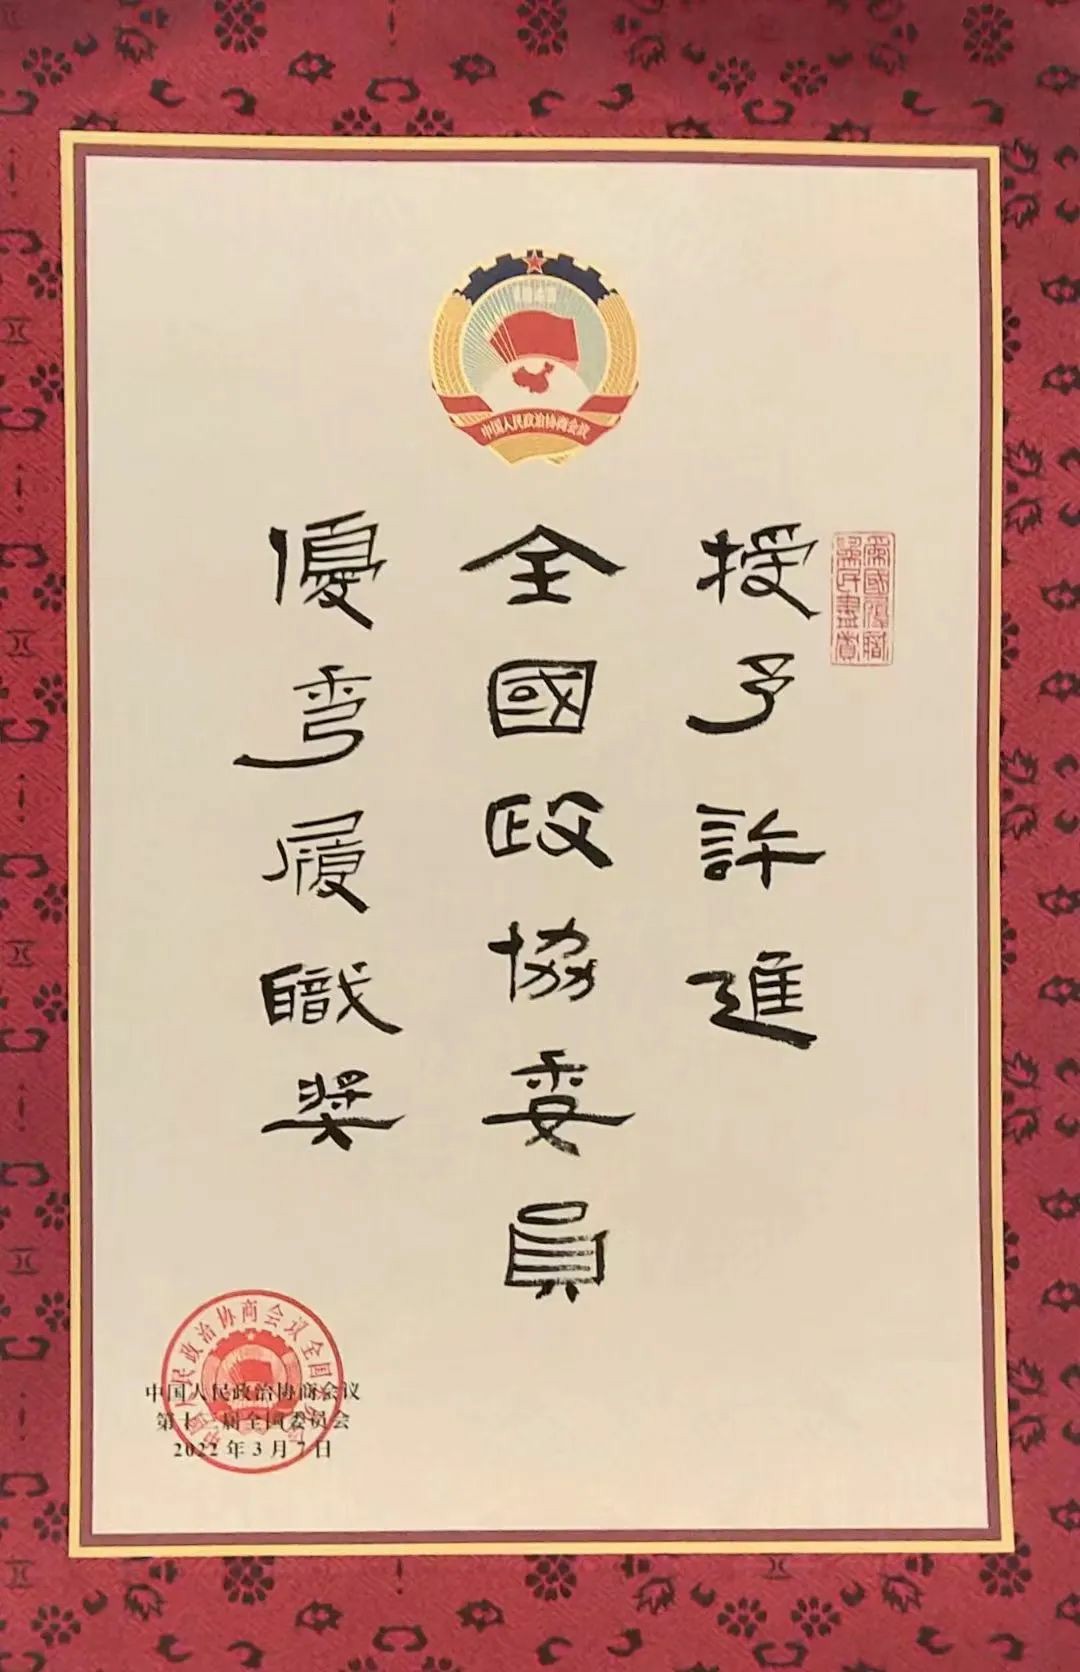 中国人民政治协商会议
為國履職
為民盡責
授予許進
全國政協委員
優秀履職奬
中国人民政治协商会议全国委员会
中国人民政治协商会议
第十三届全国委员会
2022年3月7日